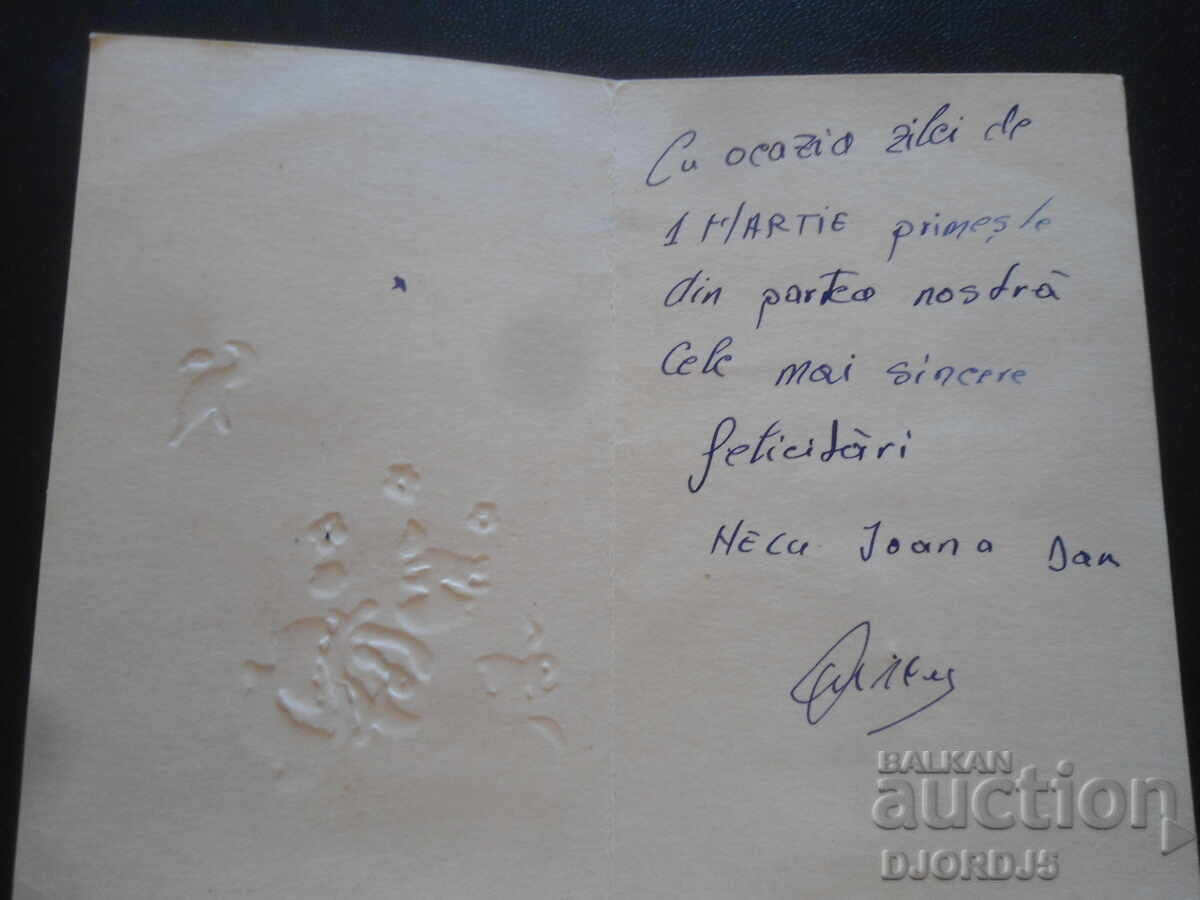 Cu ocazia zilei de
1 MARTIE primește
din partea nostră
Cele mai sincere
felicitări
Necu Joana Dan
BALKAN
auction
DJORDJ5